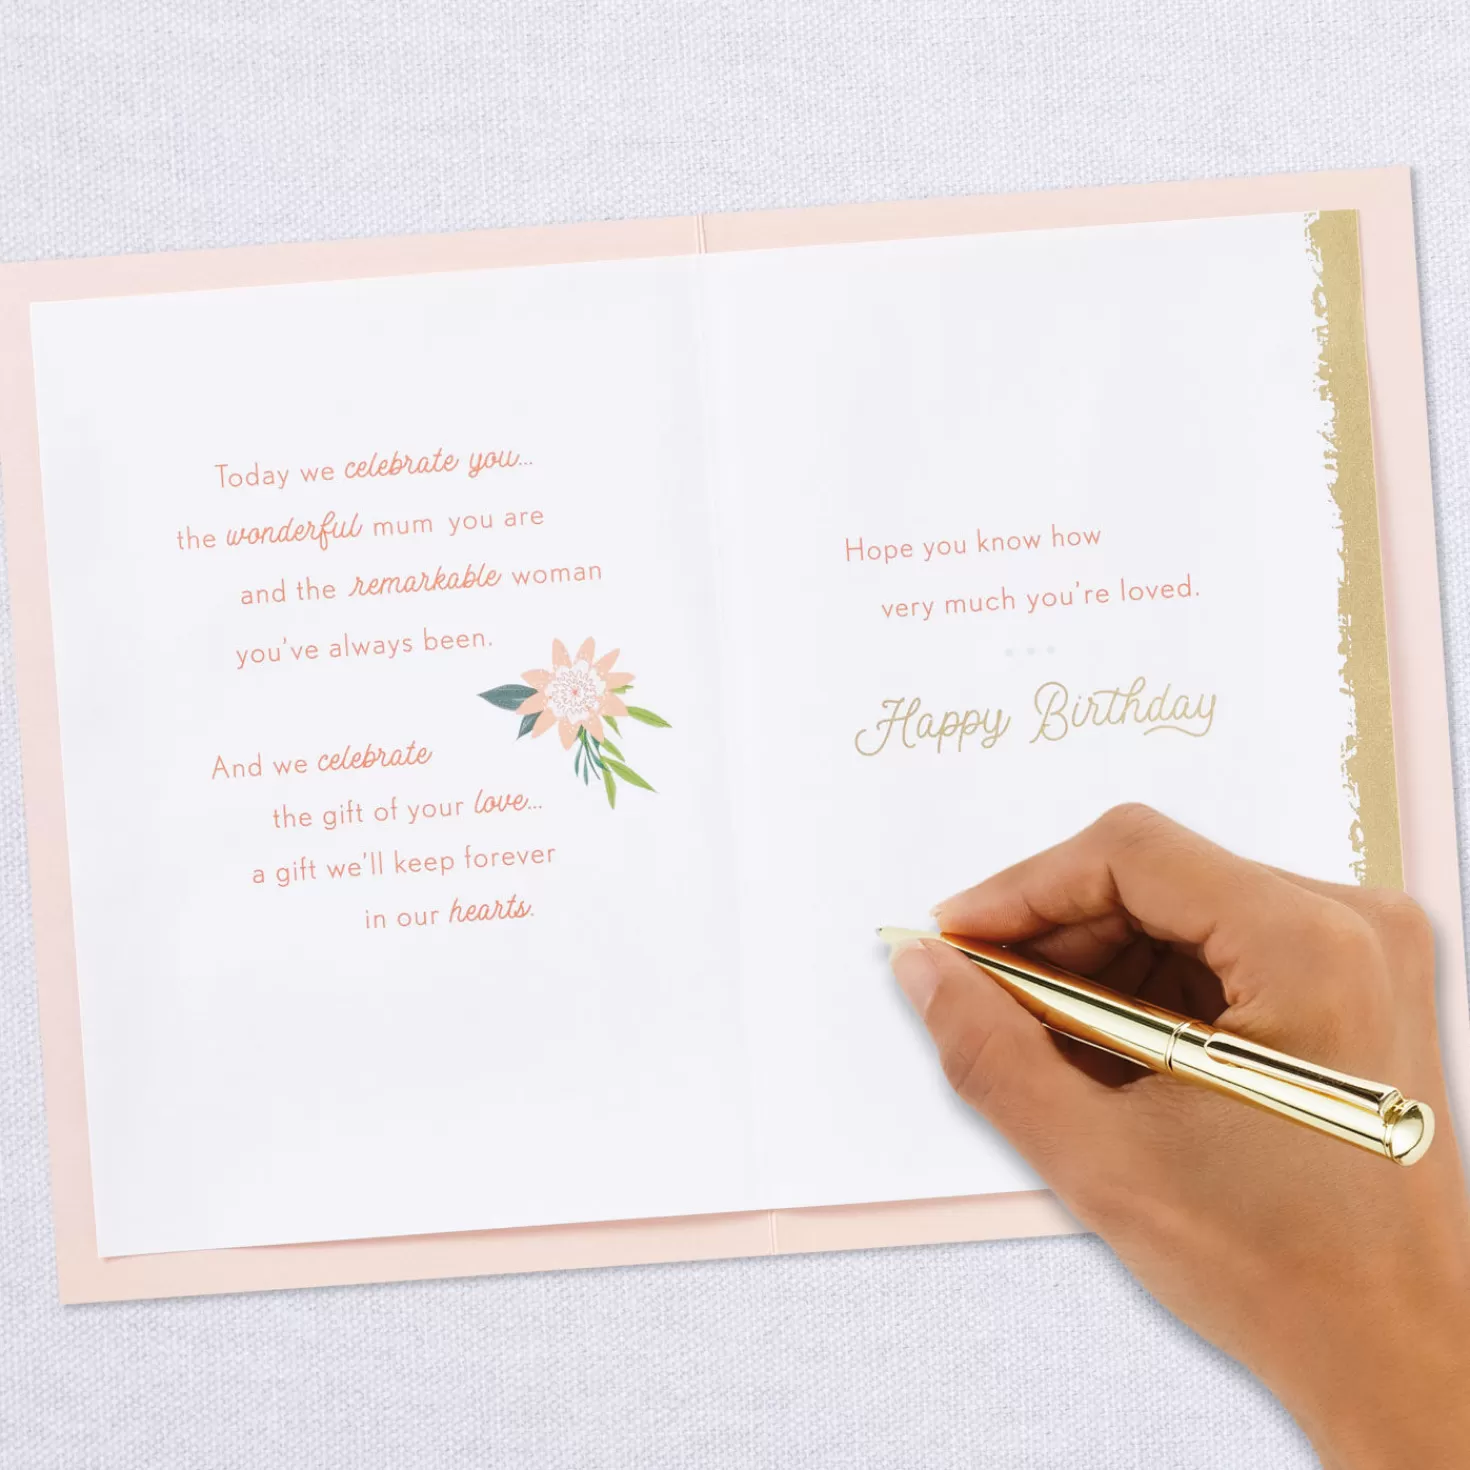 Today we celebrate you...
the wonderful mum you are
and the remarkable woman
you've always been.
And we celebrate
the gift of your love...
a gift we'll keep forever
in our hearts.
Hope you know how
very much you're loved.
Happy Birthday